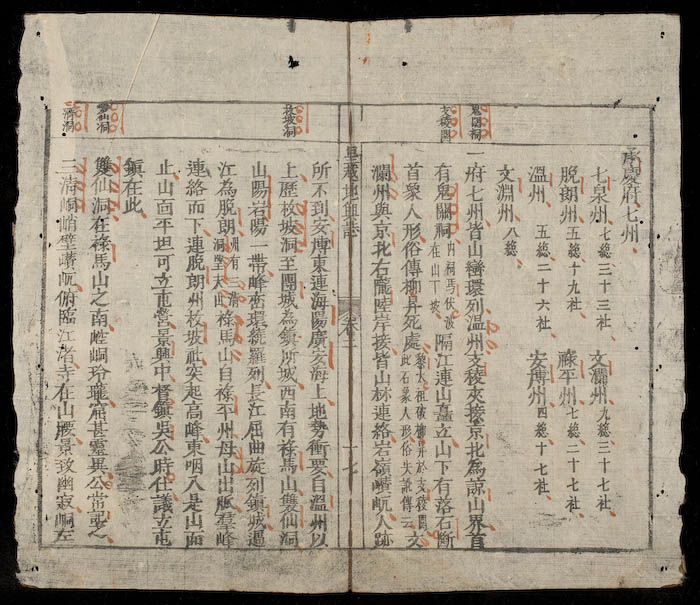 鬼門祠
支稜関
長慶府七州
七泉州 七總三十三社 文瀾州 九總三十七社
脫朗州 五總十九社 祿平州 七總二十七社
溫州 五總二十六社 安博州 四總十七社
文淵州 八總
一府七州皆山巒環列溫州支稜夾接京北為諒山界首
有鬼關祠 內祠馬伏波在山下坡 隔江連山矗立山下有落石斷
首象人形俗傳柳昇死處 黎太祖破柳昇於支稜関此石象人形俗失訛傳云 文
瀾州與京北右隴陸岸接皆山林連絡岩嶺巑岏人跡
皇越地輿誌 卷二 十七
枚坡洞
雙仙洞
清洞
所不到安博東連海陽廣安海上地勢衝要自溫州以
上歷枚坡洞至團城為鎮所城西南有祿馬山雙仙洞
山陽岩陽一帶峰巒環繞羅列長江屈曲旋列鎮城過
江為脫朗 州有三清洞 祿馬山自祿平州母山出脈羣峰
連絡而下連脫朗州枚坡社突起高峰東咽八是山面
止山面平坦可立屯營景興中督鎮吳公時仕議立屯
鎮在此
雙仙洞在祿馬山之南崆峒玲瓏窟甚靈異公常要之
三清峒峭壁巑岏俯臨江渚寺在山腰景致幽寂峒左